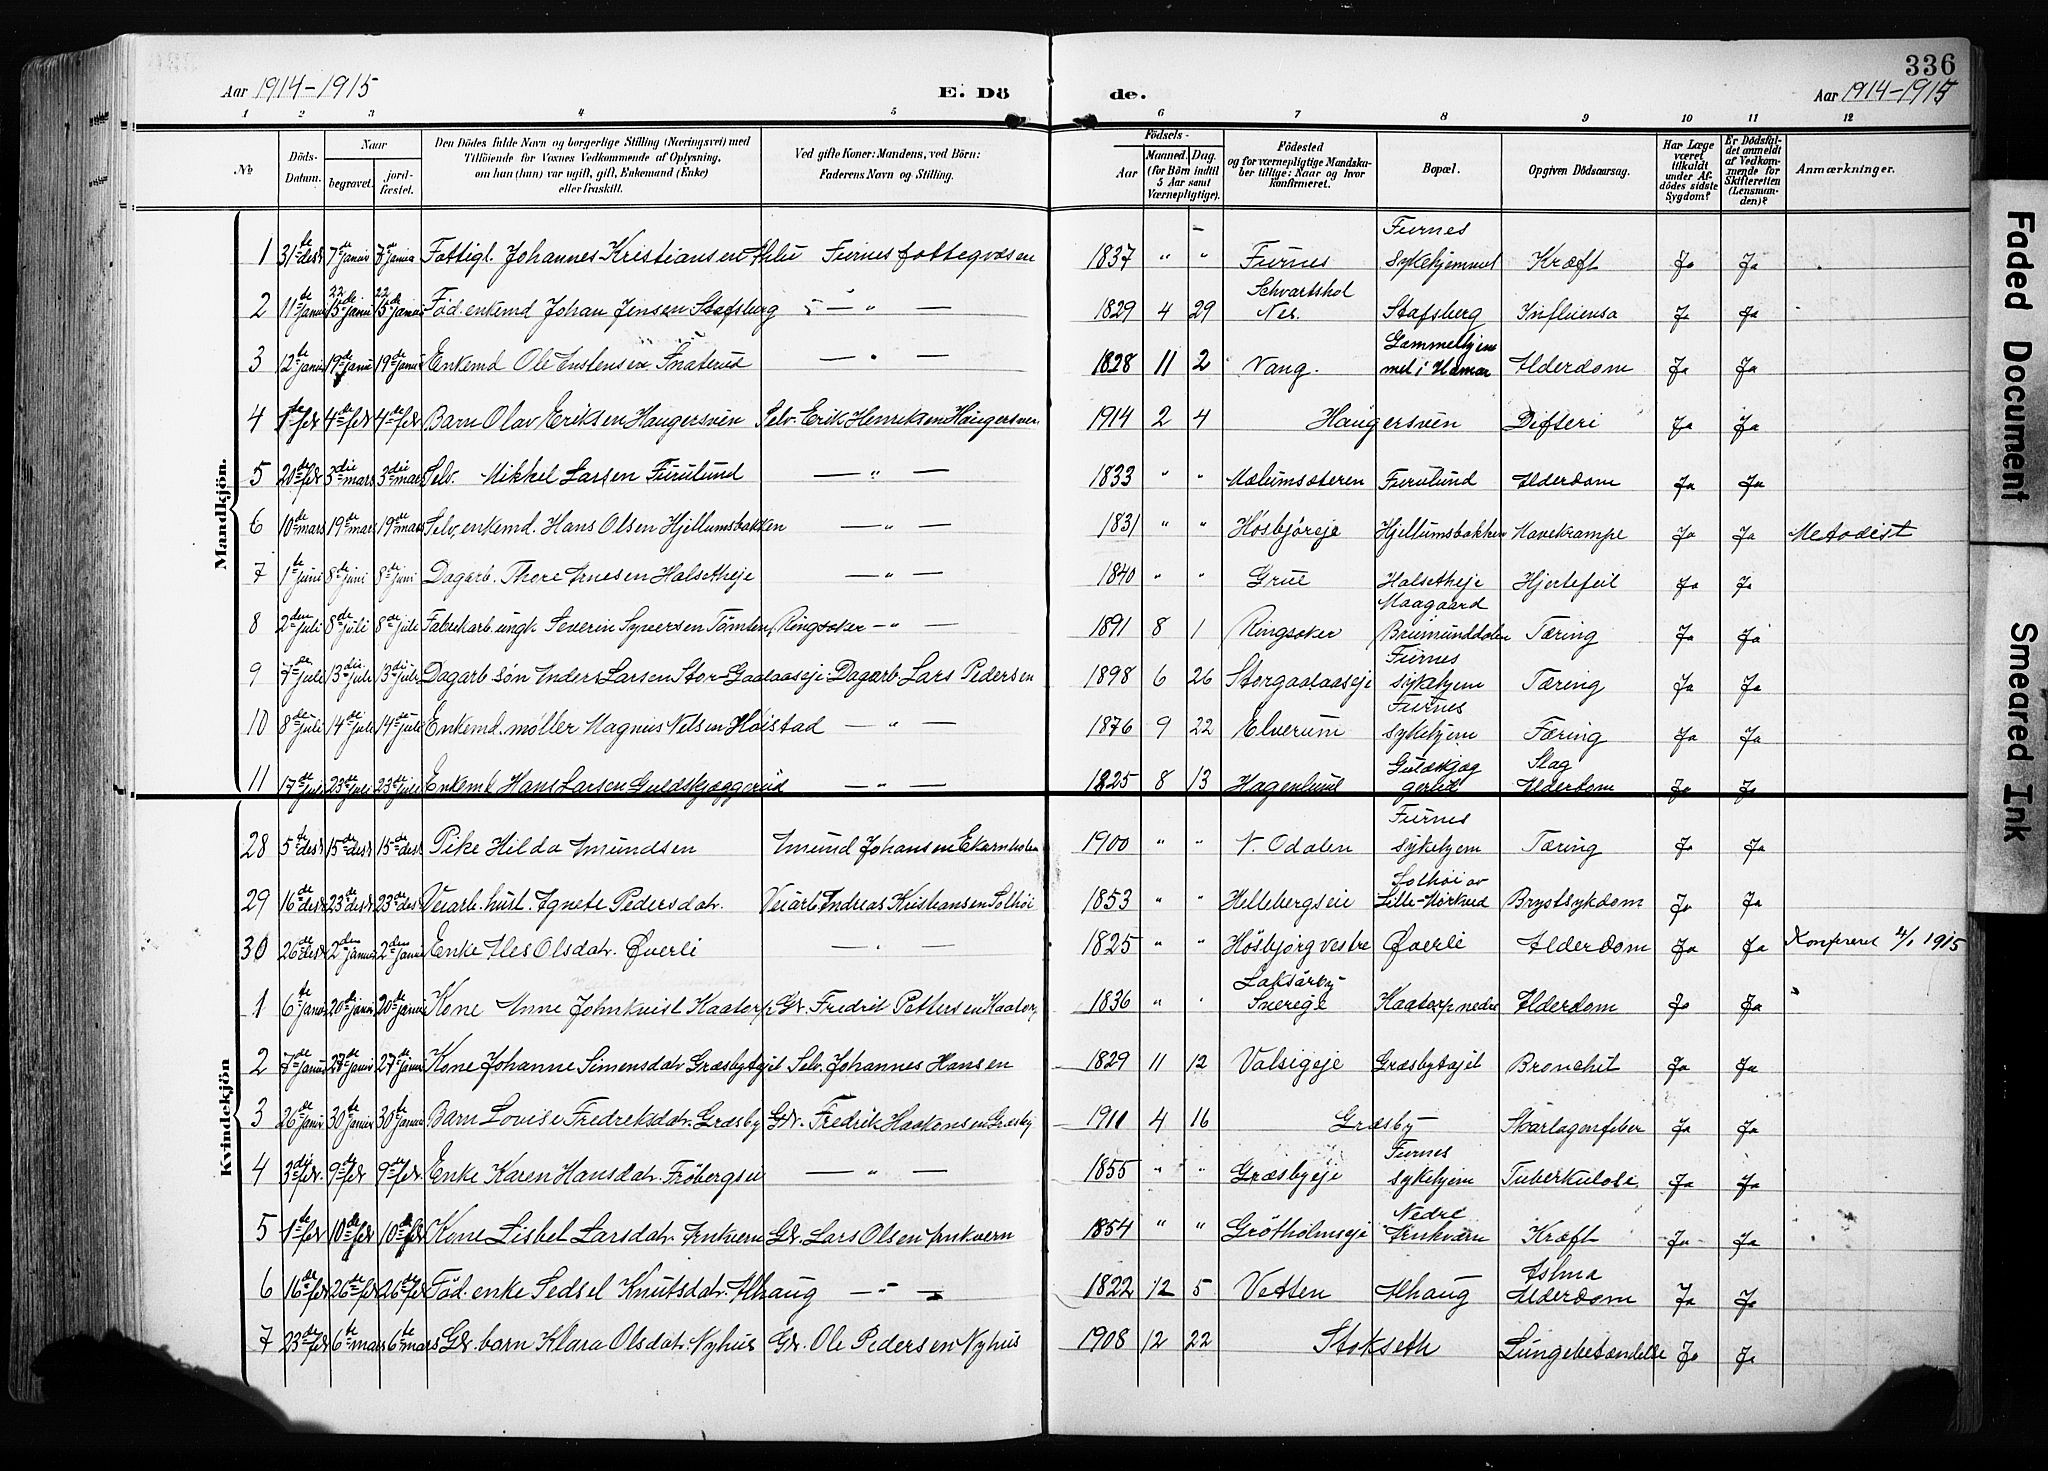 336
Aar 1914-1915 E. Dö de. Aar 1914-1915
1 2 3 4 5 6 7 8 9 10 11 12
№ Döds-Datum. Naar begravet. jord-fæstet. Den Dödes fulde Navn og borgerlige Stilling (Næringsvei) med Tilföiende for Voxnes Vedkommende af Oplysning, om han (hun) var ugift, gift, Enkemand (Enke) eller fraskilt. Ved gifte Koner: Mandens, ved Börn: Faderens Navn og Stilling. Födsels- Aar Maaned. Dag. (for Börn indtil 5 Aar samt Værnepligtige). Födested og for værnepligtige Mandska-ber tillige: Naar og hvor konfirmeret. Bopæl. Opgiven Dödsaarsag. Har Læge været tilkaldt under Af-dödes sidste Sygdom? Er Dödsfal-det anmeldt af Vedkom-mende for Skifteretten (Lensman-den)? Anmærkninger.
Mandkjön.
1 31te desb 7de januar 7de janua Fattigl. Johannes Kristiansen Furnes fattegvæsen 1837 " " Furnes Furnes Sykehjemmet Kræft Ja Ja
2 11te januar 22 15de januar 22 15de januar Föd. enkemd Johan Jensen Stafsberg — " — 1829 4 29 Schvartshol Nes. Stafsberg Influensa Ja Ja
3 12te januar 19de januar 19de januar Enkemd Ole Enstensen Snaterud — " — 1828 11 2 Vang. Gammelhjem met i Hamar Alderdom Ja Ja
4 1ste febr 4de febr 4de febr Barn Olav Eriksen Haugersven Selv. Erik Henriksen Haugersven 1914 2 4 Haugersven Difteri Ja Ja
5 20de febr 3die mars 3die mars Selv. Mikkel Larsen Furulund — " — 1833 " " Mælumsæteren Furulund Alderdom Ja Ja
6 10de mars 19de mars 19de mars Selv. enkemd. Hans Olsen Hjellumsbakken — " — 1831 " " Høsbjøreje Hjellumsbakken Mavekrampe Ja Ja Metodist
7 1ste juni 8de juni 8de juni Dagarb. Thore Arnesen Halsetheje — " — 1840 " " Grue Halsetheje Hjertefeil Ja Ja
8 2den juli 8de juli 8de juli Fabrikarb. ungk. Severin Syversen Tömten, Ringsaker — " — 1891 8 1 Ringsaker Maagaard Brumunddalen Tæring Ja Ja
9 7de juli 13die juli 13die juli Dagarb. søn Anders Larsen Stor-Gaalaaseje Dagarb. Lars Pedersen 1898 6 26 Storgaalaaseje Furnes sykehjem Tæring Ja Ja
10 8de juli 14de juli 14de juli Enkemd. møller Magnus Nilsen Høistad — " — 1876 9 22 Elverum Furnes sykehjem Tæring Ja Ja
11 17de juli 23de juli 23de juli Enkemd Hans Larsen Guldskjæggerud — " — 1825 8 13 Hagenlund Guldskjæg gerud Slag Alderdom Ja Ja
Kvindekjön
28 5te desb 15de desb 15de desb Pike Hilda Amundsen Amund Johansen Ekornholen 1900 " " N. Odalen Furnes sykehjem Tæring Ja Ja
29 16de desb 23de desb 23de desb Veiarb. hust. Agnete Pedersdatr. Veiarb. Andreas Kristiansen Solhöi 1853 " " Hellebergseie Solhöi av Lille-Mörkved Brystsykdom Ja Ja
30 26de desb 2den januar 2den januar Enke Ales Olsdatr. Øverli — " — 1825 " " Høsbjørg vestre Øverli Alderdom Ja Ja Konfereret 4/1 1915
1 6te januar 20de januar 20de januar Kone Anne Johnkvist Kaatorp Gd. Fredrik Pettersen Kaatorp 1836 " " Laksårby Sverege Kaatorp nedre Alderdom Ja Ja
2 7de januar 27de januar 27de januar Kone Johanne Simensdatr Græsbytajet Selv. Johannes Hansen 1829 11 12 Valsigeje Græsbytajet Bronchit Ja Ja
3 26de januar 30te januar 30te januar Barn Lovise Fredriksdatr. Græsby Gdr. Fredrik Haakonsen Græsby 1911 4 16 Græsby Skarlagenfeber Ja Ja
4 3die febr. 9de febr 9de febr. Enke Karen Hansdatr. Frøbergseie — " — 1855 " " Græsbyeje Furnes sykehjem Tuberkulose Ja Ja
5 1ste febr 10de febr 10de febr Kone Lisbet Larsdatr Arnkvern Gdr. Lars Olsen Arnkvern 1854 " " Grøtholmseje Nedre Arnkværn Kræft Ja Ja
6 16de febr 26de febr 26de febr Föd. enke Sedsel Knutsdatr. Alhaug — " — 1822 12 5 Vetten Alhaug Astma Alderdom Ja Ja
7 23de febr 6te mars 6te mars Gdr. barn Klara Olsdatr. Nyhus Gdr. Ole Pedersen Nyhus 1908 12 22 Stokseth Lungebetændelse Ja Ja
Faded Document
Smeared Ink